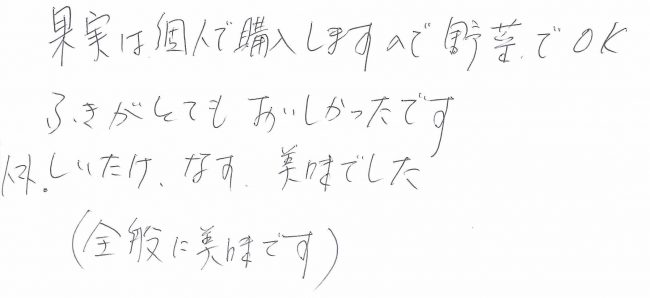 果実は個人で購入しますので野菜でOK
ふきがとてもおいしかったです
トマト.しいたけ、なす、美味でした
(全般に美味です)